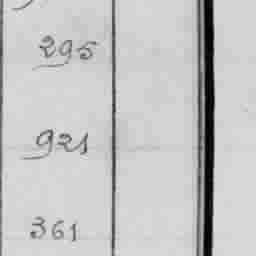 295
921
361